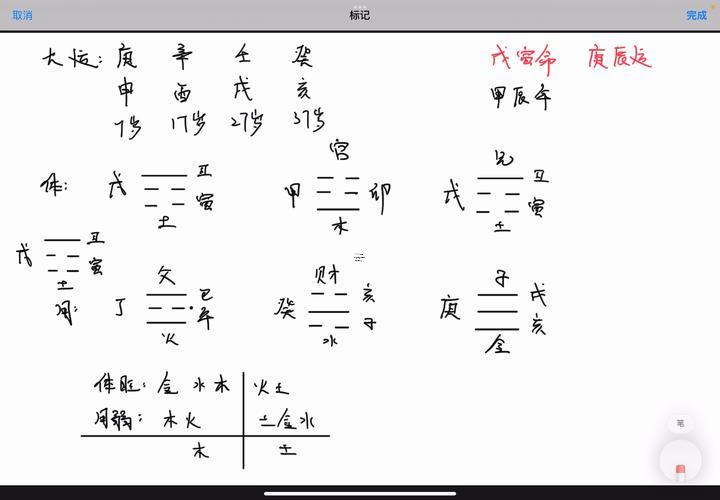 取消 标记 完成
大运: 庚 辛 壬 癸 戊寅命 庚辰运
申 酉 戌 亥 甲辰年
7岁 17岁 27岁 37岁
官 兄
体: 戊 丑 甲 卯 戊 丑
寅 寅
土 木 土
戊 丑
寅
土
父 财 子
用: 丁 巳 癸 亥 庚 戌
午 子 亥
火 水 金
体旺: 金 水 木 火土
用弱: 木火 土金水
木 土
笔